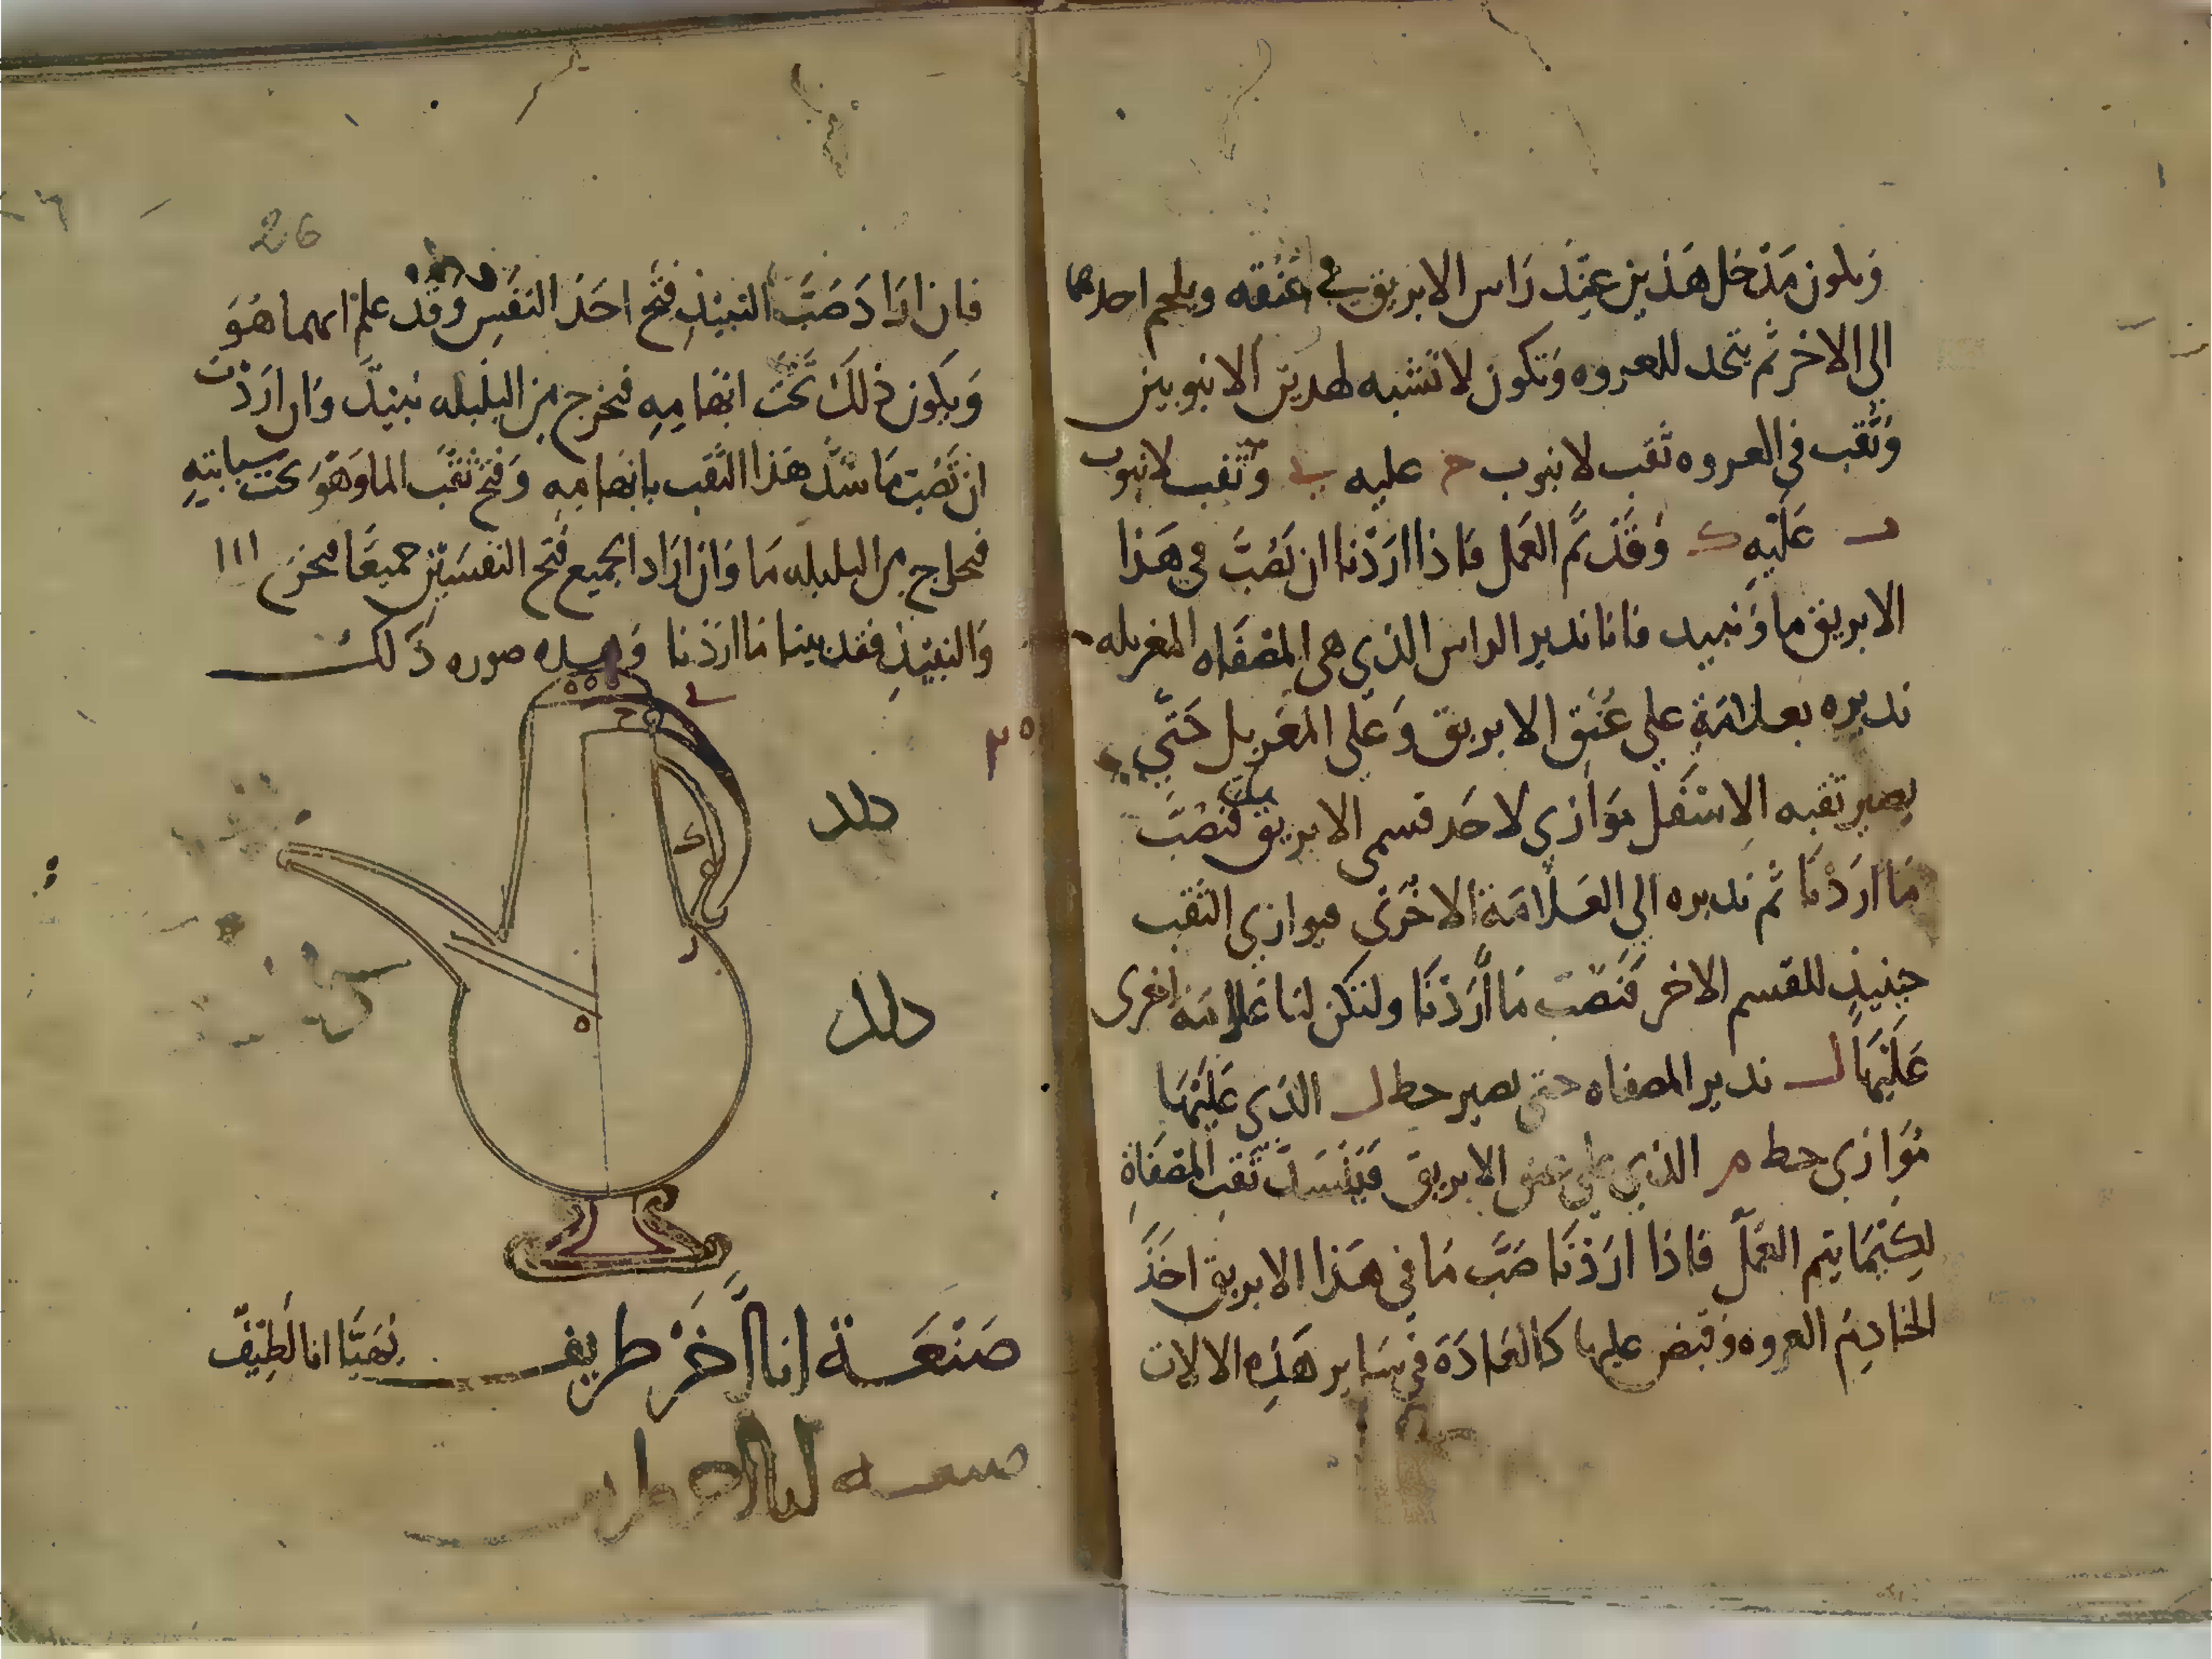 ويكون مدخل هذين عند راس الابريق في عنقه ويلحم احدهما
الى الاخر ثم يتخذ للعروه وتكون لا تشبه لهذين الانبوبين
وثقب في العروه ثقب لانبوب ح عليه ي وثقب لانبوب
د عليه ك وقد تم العمل فاذا اردنا ان نصب في هذا
الابريق ما ونبيد فانا ندير الراس الذي هى المصفاه المغربله
نديره بعلامة على عنق الابريق وعلى المغربل حتى
يصير ثقبه الاسفل موازي لاحد قسمى الابريق فنصب
ما اردنا ثم نديره الى العلامة الاخرى فيوازي الثقب
حينيذ للقسم الاخر فنصب ما اردنا ولتكن لنا علامة اخرى
عليها ل ندير المصفاه حتى يصير خط ل الذي عليها
موازي خط م الذي على عنق الابريق فينسد ثقب المصفاة
لكيما يتم العمل فاذا اردنا صب ما في هذا الابريق اخذ
الخادم العروه وقبض عليها كالعادة في ساير هذه الالات
26
فان اراد صب النبيذ فتح احد النفسين وقد علم ايهما هو
ويكون ذلك تحت ابهامه فيخرج من البلبله نبيذ وان اردت
ان تصب ما سد هذا الثقب بابهامه وفتح ثقب الما وهو تحت سبابته
فيخرج من البلبله ما وان اراد الجميع فتح النفسين جميعا فيخرج الما
والنبيذ فقد بينا ما اردنا وهذه صوره ذلك
ي
ح
ك
د
ه
صنعة انا اخر طريف نهيا انا لطيف
صنعه انا اخر طريف